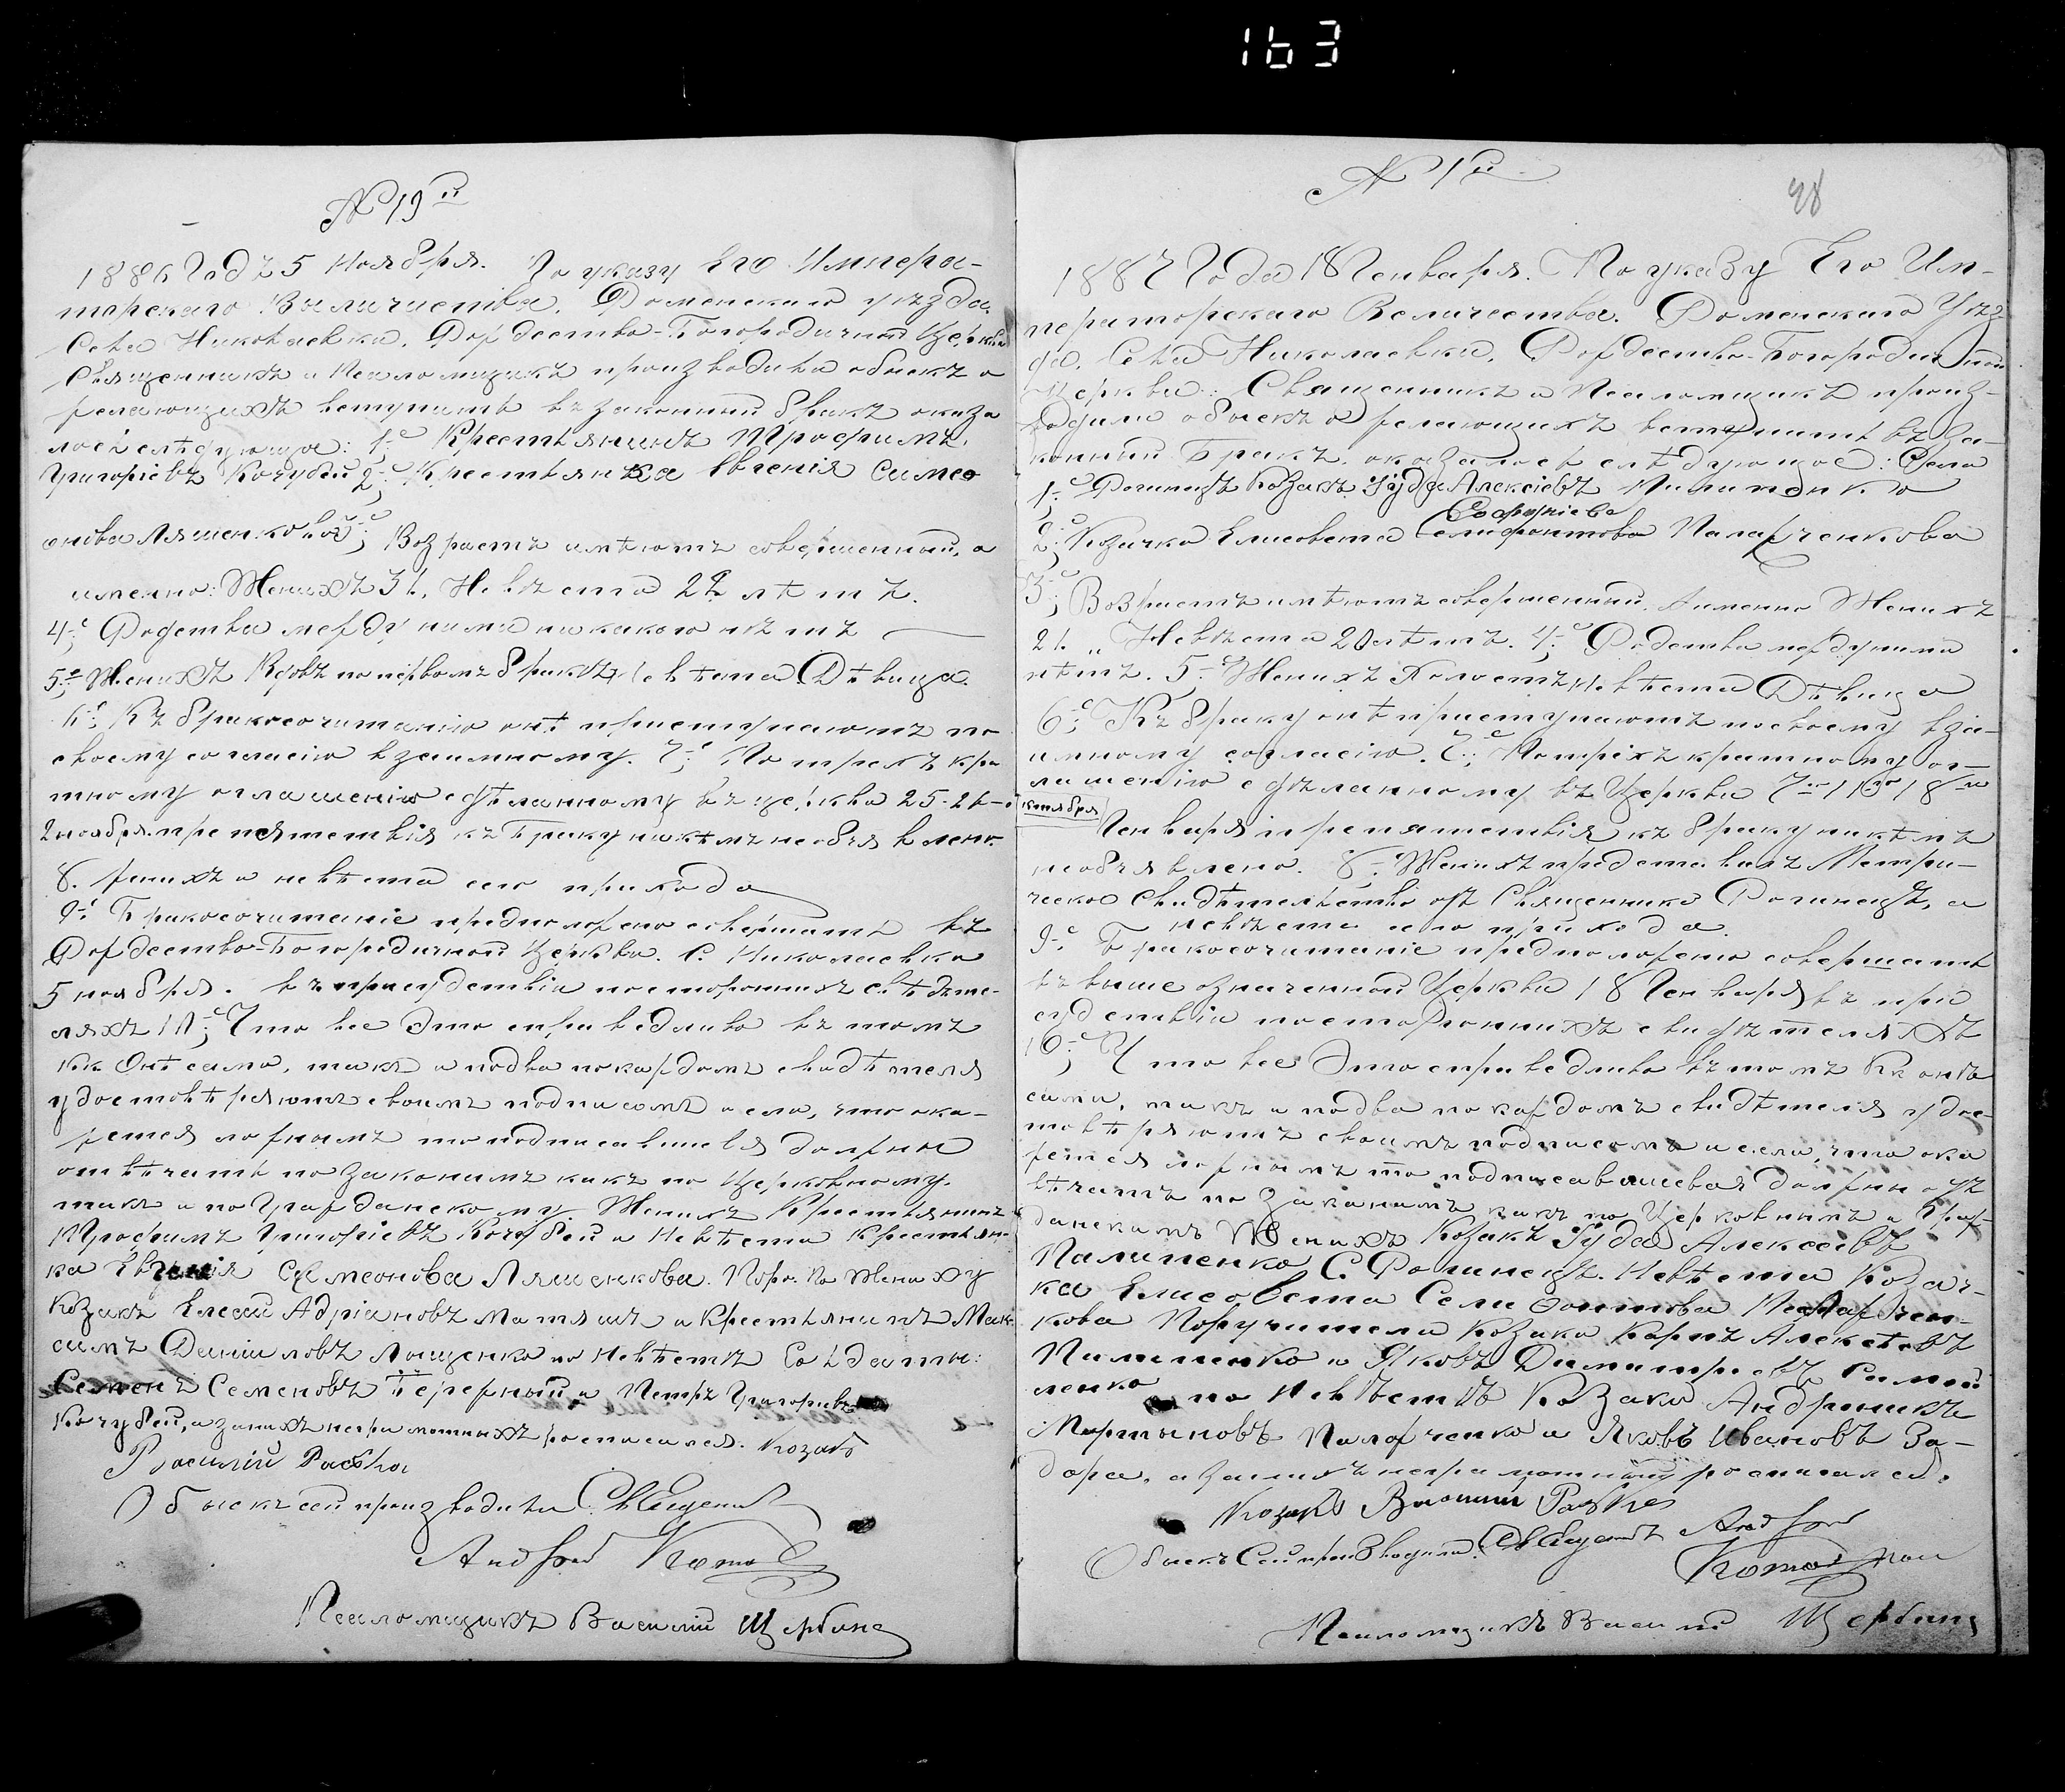 163
№ 19й
1886 Годъ 5 Ноября. По указу Его Импера-
торскаго Величества. Роменскаго уѣзда.
Села Николаевки, Рождество-Богородичной Церкви
Священникъ и Псаломщикъ производили обыскъ о
желающихъ вступить въ законный бракъ оказа
лось слѣдующее: 1-е; Крестьянинъ Трофимъ,
Григоріевъ Кочубей 2-е; Крестьянка Евгенія Симео
онова Ляшенкова 3-е; Возрастъ имѣютъ совершенный, а
именно: Женихъ 31, Невѣста 22 лѣтъ.
4-е; Родства между ними никакого нѣтъ
5-е; Женихъ Вдовъ по первомъ бракѣ, Невѣста Дѣвица.
6-е; Къ бракосочитанію онѣ приступаютъ по
своему согласію взаимному. 7-е; По трехъ кра
тному оглашенію сдѣланному въ церкви 25. 26 и
2 ноября. препятствія къ Браку никѣмъ необъявлено.
8. женихъ и невѣста сего прихода
9-е Бракосочитаніе предположено совершить въ
Рождество-Богородичной Церкви. С. Николаевки
5 ноября. въ присудствіи постороннихъ свѣдѣте-
ляхъ 10-е; Что все Это справедливо въ томъ
кк Онѣ сами, такъ и подва покаждомъ свидѣтеля
удостовѣряютъ своимъ подписомъ и если, что ока-
жется ложнымъ то подписавшиеся должны
отвѣчать по законамъ какъ по Церковному.
такъ и по Гражданскому Женихъ Крестьянинъ
Трофимъ Григоріевъ Кочубей и Невѣста Крестьян-
ка Евгенія Симеонова Ляшенкова. Пору. По Жениху
Козакъ Елесей Адріановъ Матяшъ и Крестьянинъ Мак-
симъ Даніиловъ Лященко по Невѣстѣ Солдаты:
Семенъ Семеновъ Бережный и Петръ Григоріевъ
Кочубей, а занихъ неграмотныхъ росписался. Козакъ
Василій Рабка
Обыскъ сей производили Священникъ
Андрей
Псаломщикъ Василій Щербина
№ 1й
98
1887 Года 18 Генваря. По указу Его Им-
ператорскаго Величества. Роменскаго Уѣз-
да, Села Николаевки, Рождество-Богородичной
Церкви: Священникъ и Псаломщикъ произ-
водили обыскъ о желающихъ вступить въ за-
конный Бракъ оказалось слѣдующее: Села
1-е; Рогинецъ Козакъ Іуда Алексіевъ Пилипенко
2-е; Козачка Елисовета Селифонтова Палажченкова
3-е; Возрастъ имѣютъ совершенный. Аименно Женихъ
21. „ Невѣста 20 лѣтъ. 4-е; Родства между ними
нѣтъ. 5-е Женихъ Холостъ Невѣста Дѣвица
6-е; Къ браку онѣ приступаютъ по своему вза-
имному согласію. 7-е; По трехъ кратному ог-
лашенію сдѣланному въ Церкви
Генваря препятствія къ браку никѣмъ
необъявлено. 8-е; Женихъ представилъ Метри-
ческое Свидѣтельство отъ Священника Рогинецъ, а
невѣста сего прихода.
9-е Бракосочитаніе предположено совершить
въ выше означенной Церкви 18 Генваря въ при
судствіи постороннихъ свидѣтеляхъ
10-е; Что все Это справедливо въ томъ Кк онѣ
сами, такъ и подва по каждомъ свидѣтеля удос-
товѣряютъ своимъ подписомъ и если, что ока
жется ложнымъ то подписавшиеся должны от
вѣчать по законамъ какъ по Церковнымъ и Граж-
данскимъ Женихъ Козакъ Іуда Алексѣевъ
Пилипенко С. Рогинецъ. Невѣста Козач-
ка Елисовета Селифонтова Палажчен-
кова Поручители Козаки Карпъ Алексѣевъ
Пилипенко и Яковъ Димитріевъ
ленко по Невѣстѣ Козаки Андроникъ
Мартыновъ Палажченко и Яковъ Ивановъ За-
дора, а занихъ неграмотныхъ росписался.
Козакъ Василій Рабка
Обыскъ Сей производили: Священникъ Андрей
Псаломщикъ Василій Щербина